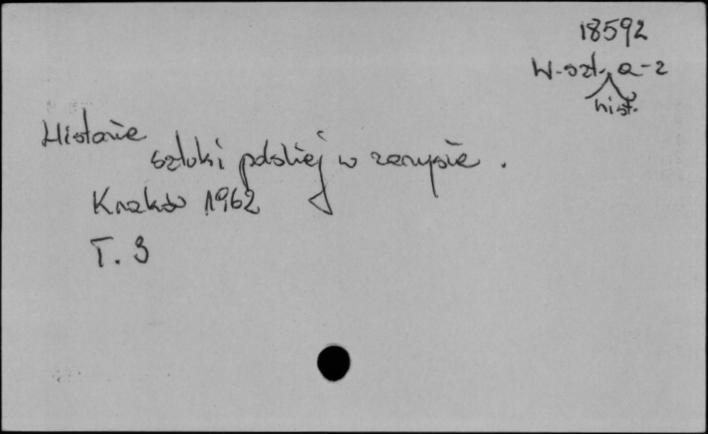 18592
W-szt. a-z
hist.
Historia
sztuki polskiej w zarysie.
Kraków 1962
T. 3